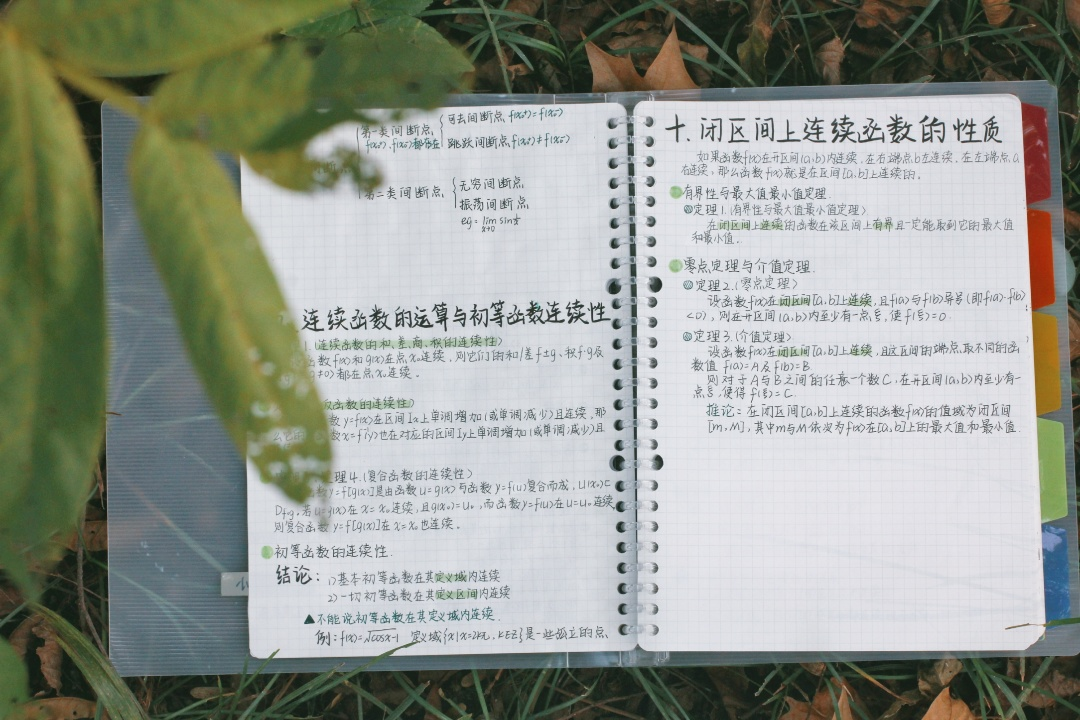 第一类间断点
f(x₀⁺), f(x₀⁻)都存在
可去间断点 f(x₀⁺)=f(x₀⁻)
跳跃间断点 f(x₀⁺)≠f(x₀⁻)
第二类间断点
无穷间断点
振荡间断点
eg: lim sin 1/x
x→0
连续函数的运算与初等函数连续性
1.(连续函数的和、差、商、积的连续性)
函数f(x)和g(x)在点x₀连续,则它们的和/差f±g、积f·g及
≠0)都在点x₀连续.
函数的连续性)
数y=f(x)在区间Iₓ上单调增加(或单调减少)且连续,那
数x=f⁻¹(y)也在对应的区间Iy上单调增加(或单调减少)且
定理4.(复合函数的连续性)
y=f[g(x)]是由函数u=g(x)与函数y=f(u)复合而成,U(x₀)⊂
Df∘g,若u=g(x)在x=x₀连续,且g(x₀)=u₀,而函数y=f(u)在u=u₀连续
则复合函数y=f[g(x)]在x=x₀也连续.
初等函数的连续性.
结论:1)基本初等函数在其定义域内连续
2)一切初等函数在其定义区间内连续
▲不能说初等函数在其定义域内连续.
例:f(x)=√cosx-1 定义域{x|x=2kπ, k∈Z}是一些孤立的点、
十.闭区间上连续函数的性质
如果函数f(x)在开区间(a,b)内连续,在右端点b左连续,在左端点a
右连续,那么函数f(x)就是在区间[a,b]上连续的.
有界性与最大值最小值定理.
定理1.(有界性与最大值最小值定理)
在闭区间上连续的函数在该区间上有界且一定能取到它的最大值
和最小值.
零点定理与介值定理.
定理2.(零点定理)
设函数f(x)在闭区间[a,b]上连续,且f(a)与f(b)异号(即f(a)·f(b)
<0),则在开区间(a,b)内至少有一点ξ,使f(ξ)=0.
定理3.(介值定理)
设函数f(x)在闭区间[a,b]上连续,且这区间的端点取不同的函
数值 f(a)=A及f(b)=B
则对于A与B之间的任意一个数C,在开区间(a,b)内至少有一
点ξ,使得f(ξ)=C.
推论:在闭区间[a,b]上连续的函数f(x)的值域为闭区间
[m,M],其中m与M依次为f(x)在[a,b]上的最大值和最小值.